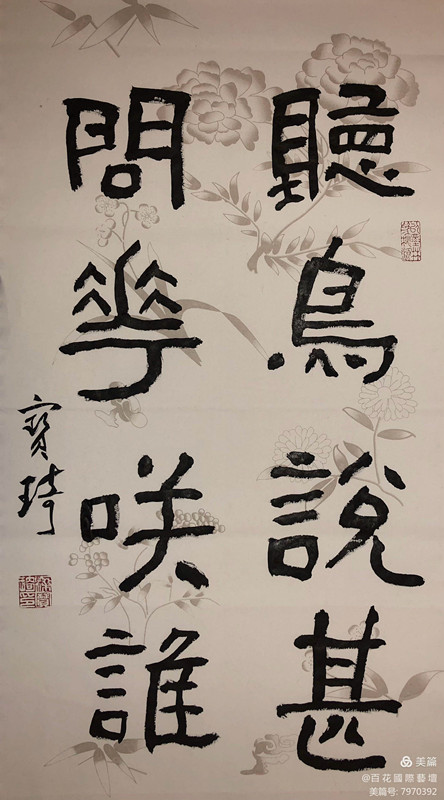 聽鳥說甚
問花咲誰
寶琦
美篇
@百花國際藝壇
美篇号: 7970392